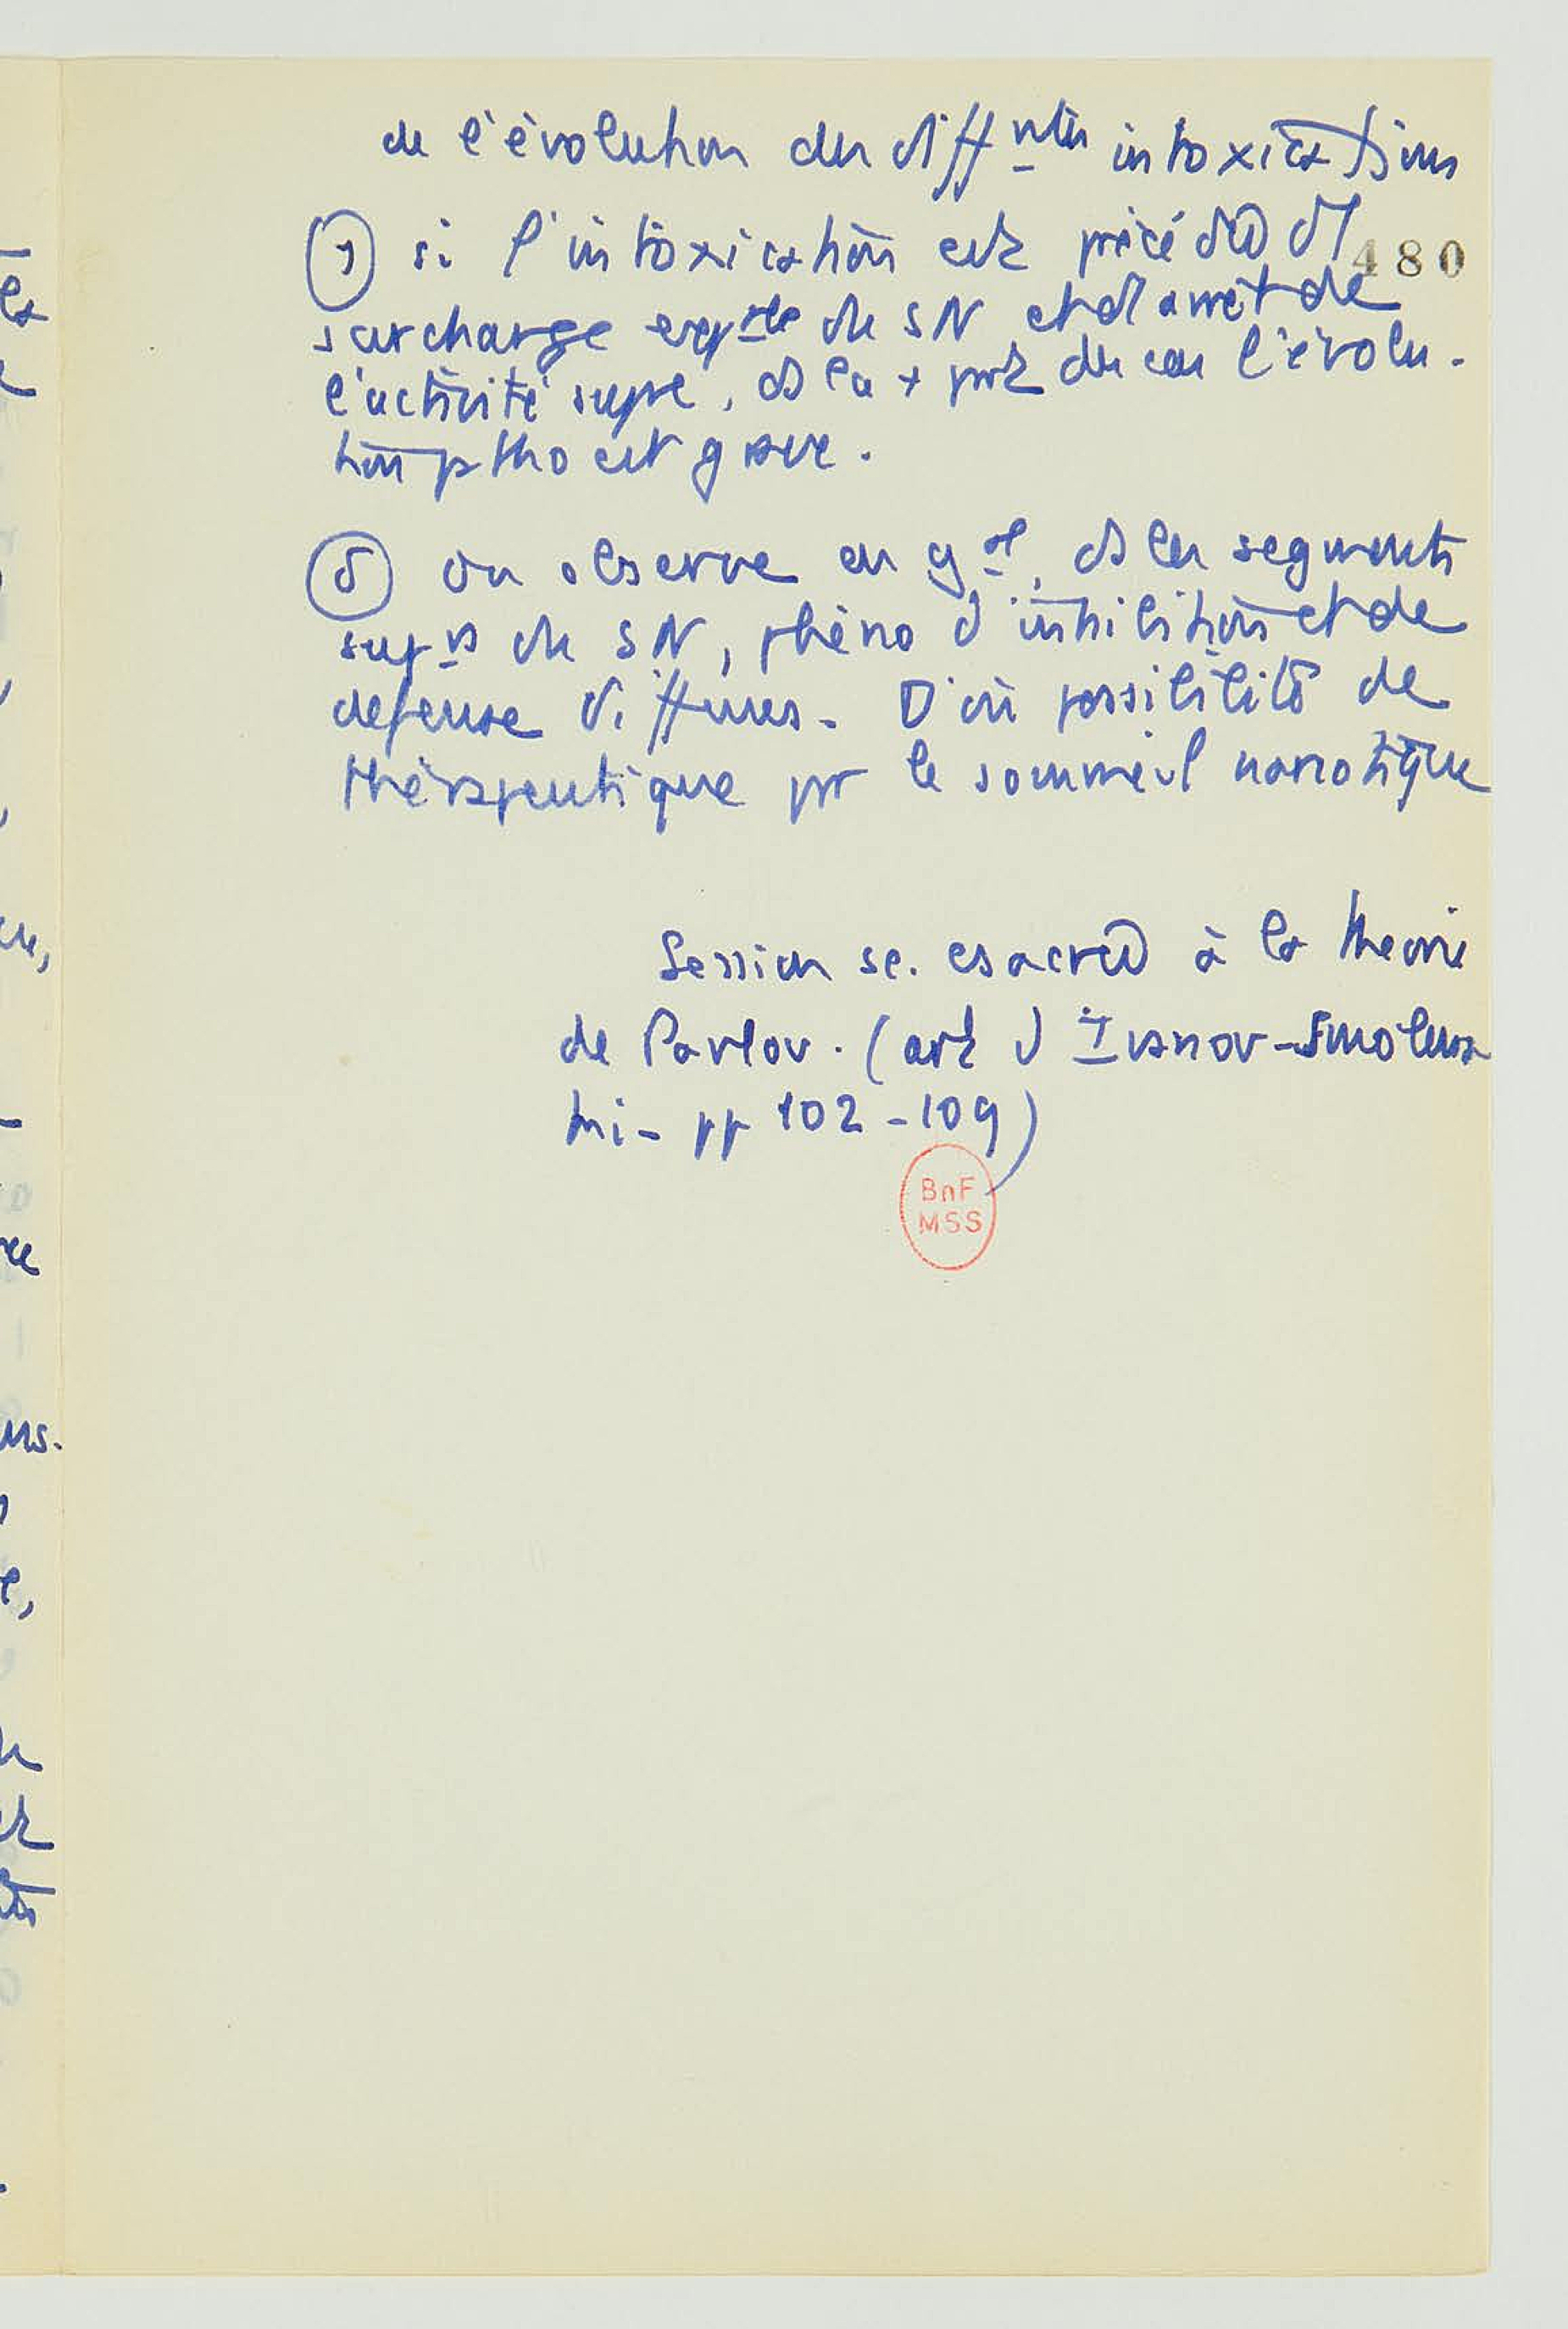 de l'évolution des diffntes intoxications
γ si l'intoxication est précédée d'1
480
surcharge expale du SN et d'arrêt de
l'activité supre, ds la + part des cas l'évolu-
tion patho est grave.
δ on observe en gal, ds les segments
suprs du SN, phéno d'inhibition et de
défense diffuses. D'où possibilité de
thérapeutique par le sommeil narcotique
Session sc. csacrée à la théorie
de Pavlov. (art d'Ivanov-Smolens
ki - pp 102-109)
BnF
MSS